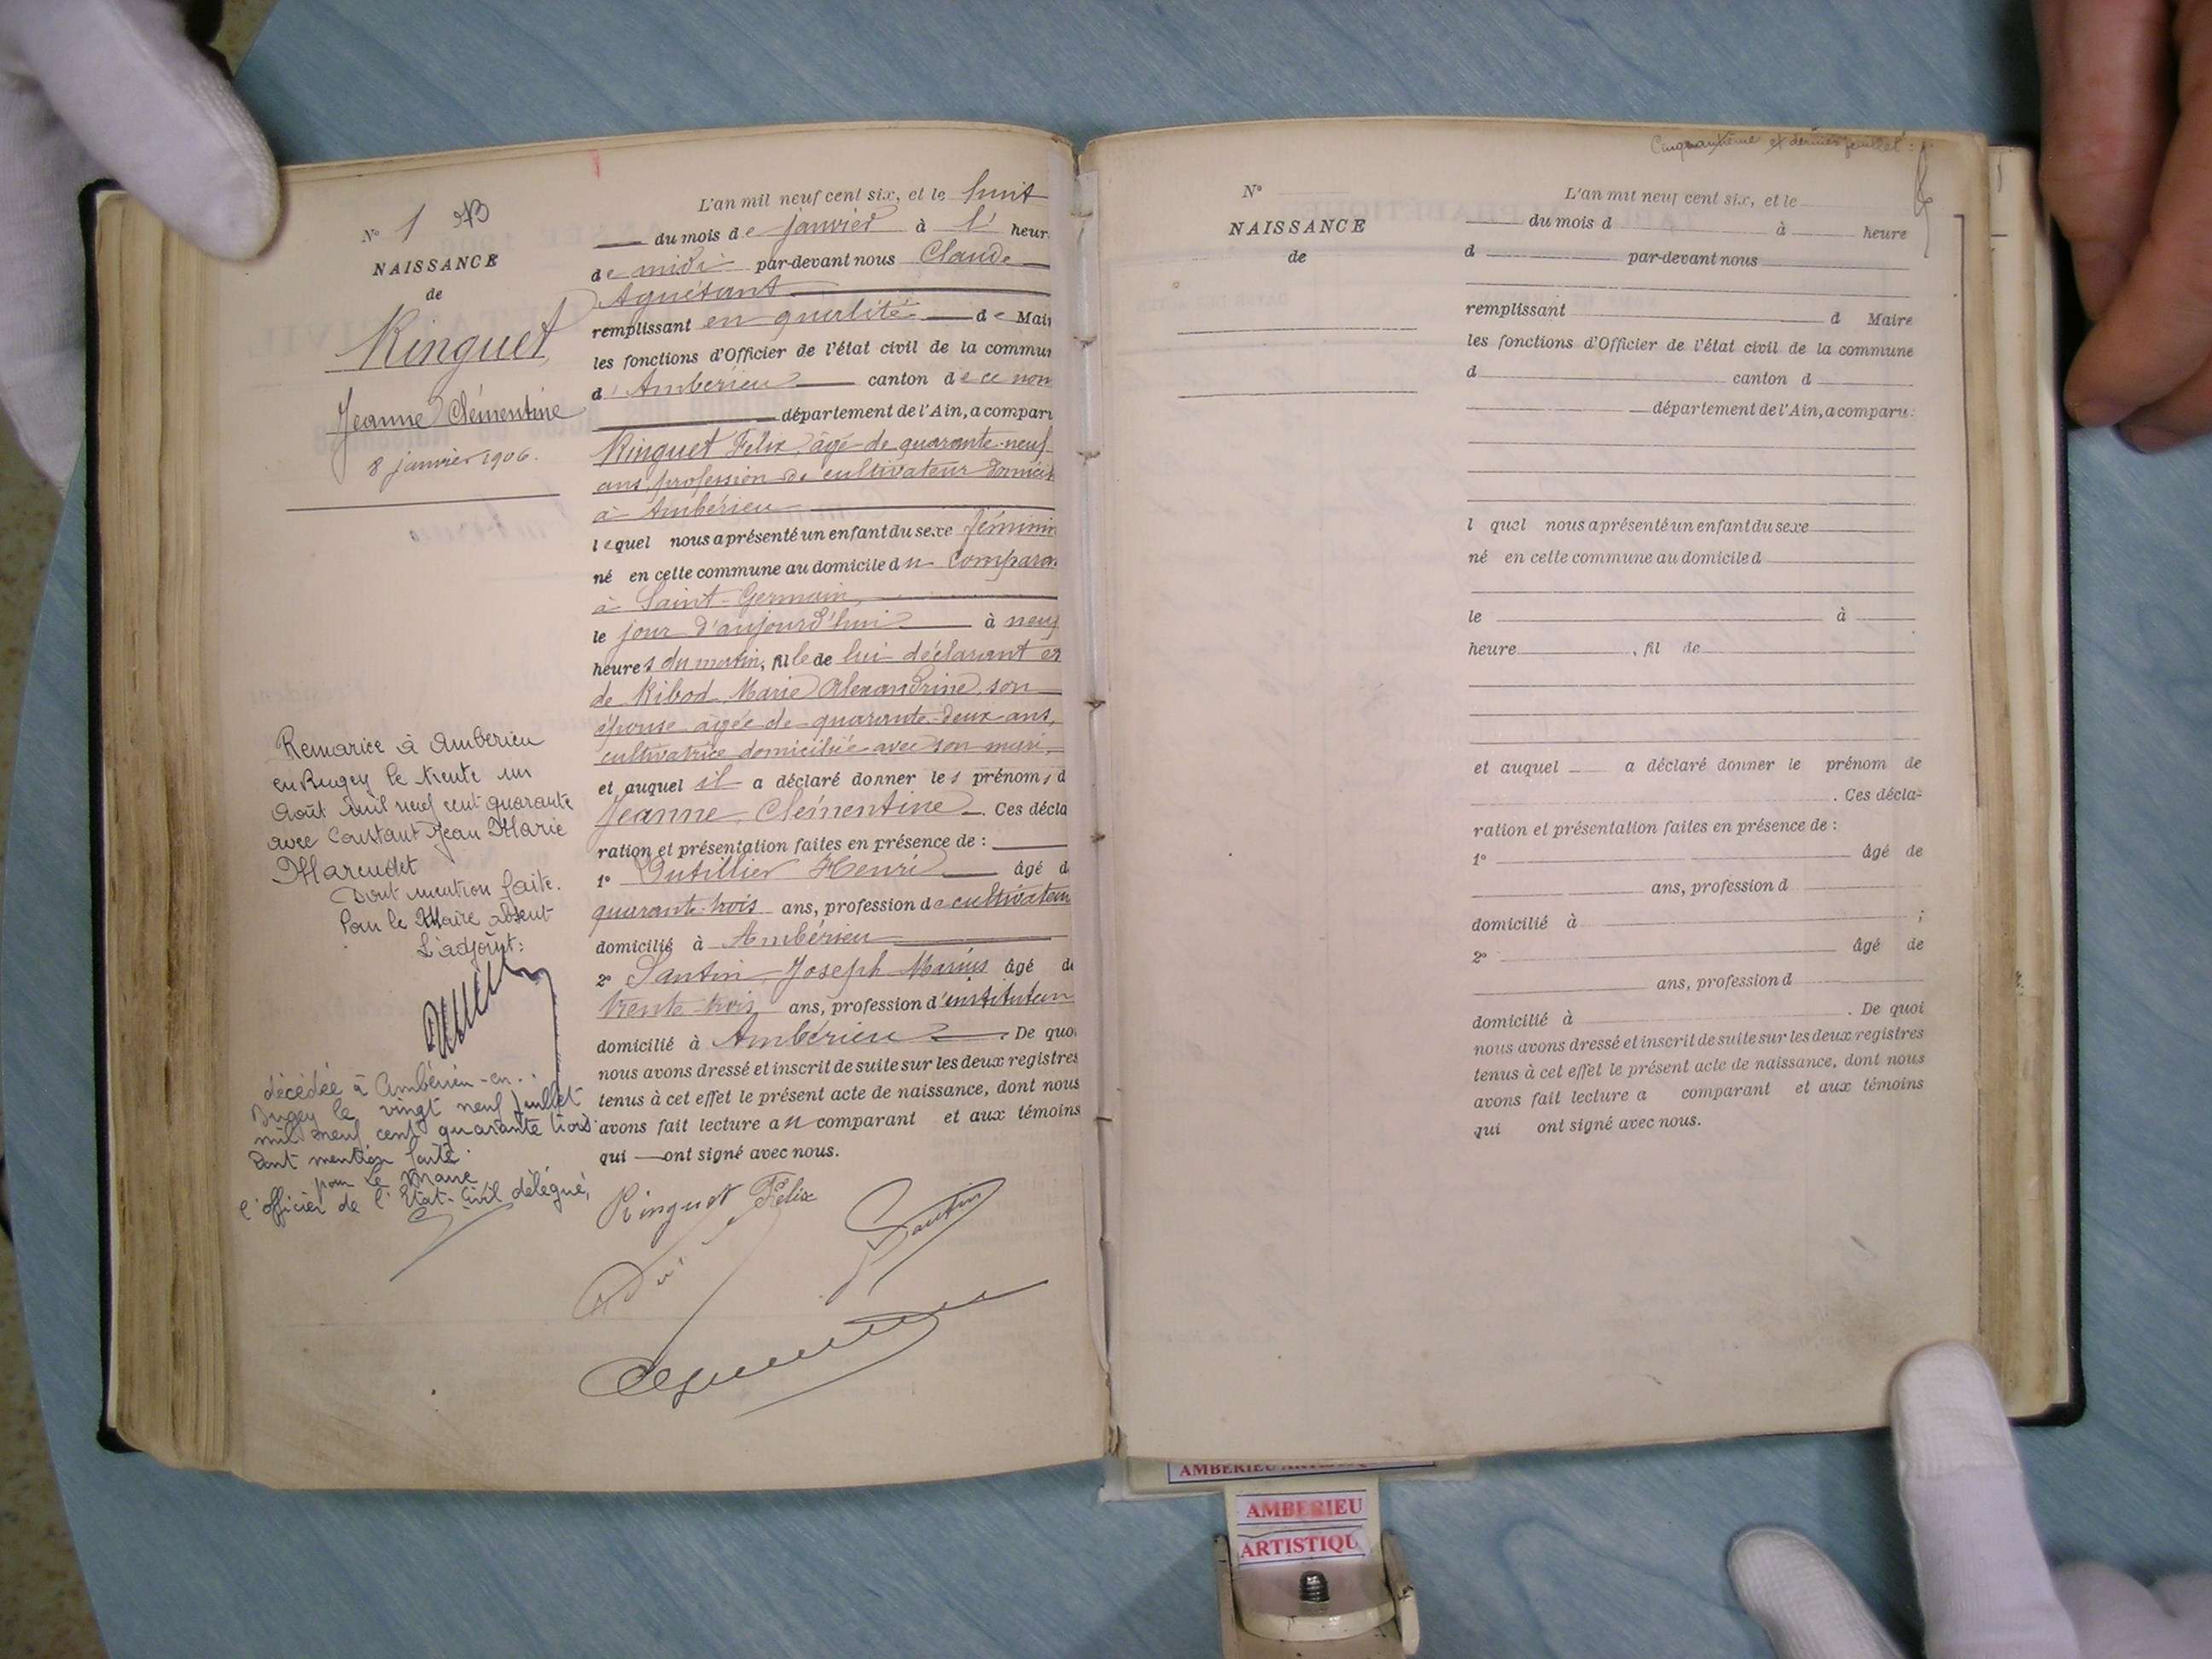 N° 1
NAISSANCE
de
Ringuet
Jeanne Clémentine
8 janvier 1906.
Remariée à Ambérieu
en Bugey le trente un
Août mil neuf cent quarante
avec Constant Jean Marie
Dont mention faite.
Pour le Maire absent
L'adjoint:
décédée à Ambérieu-en-
Bugey le vingt neuf juillet
mil neuf cent quarante trois.
Dont mention faite.
pour Le Maire
l'officier de l'Etat-Civil délégué,
L'an mil neuf cent six, et le huit
du mois de janvier à l' heur
de midi par-devant nous Claude
Aguétant
remplissant en qualité de Mair
les fonctions d'Officier de l'état civil de la commun
d'Ambérieu canton de ce nom
département de l'Ain, a comparu
Ringuet Félix, âgé de quarante-neuf
ans, profession de cultivateur domicil
à Ambérieu
lequel nous a présenté un enfant du sexe féminin
né en cette commune au domicile du comparan
à Saint-Germain,
le jour d'aujourd'hui à neuf
heures du matin, fille de lui déclarant et
de Ribod Marie Alexandrine, son
épouse âgée de quarante-deux ans,
cultivatrice domiciliée avec son mari,
et auquel il a déclaré donner les prénoms d
Jeanne, Clémentine. Ces décla
ration et présentation faites en présence de :
1° Dutillier Henri âgé d
quarante-trois ans, profession de cultivateur
domicilié à Ambérieu
2° Santin Joseph Marius âgé de
trente-trois ans, profession d'instituteur
domicilié à Ambérieu. De quoi
nous avons dressé et inscrit de suite sur les deux registres
tenus à cet effet le présent acte de naissance, dont nous
avons fait lecture au comparant et aux témoins
qui ont signé avec nous.
Ringuet Félix
Santin
Cinquantième et dernier feuillet :
N°
NAISSANCE
de
L'an mil neuf cent six, et le
du mois d à heure
d par-devant nous
remplissant d Maire
les fonctions d'Officier de l'état civil de la commune
d canton d
département de l'Ain, a comparu:
l quel nous a présenté un enfant du sexe
né en cette commune au domicile d
le à
heure , fil de
et auquel a déclaré donner le prénom de
. Ces décla-
ration et présentation faites en présence de :
1° âgé de
ans, profession d
domicilié à ;
2° âgé de
ans, profession d
domicilié à . De quoi
nous avons dressé et inscrit de suite sur les deux registres
tenus à cet effet le présent acte de naissance, dont nous
avons fait lecture a comparant et aux témoins
qui ont signé avec nous.
AMBERIEU
AMBERIEU
ARTISTIQU